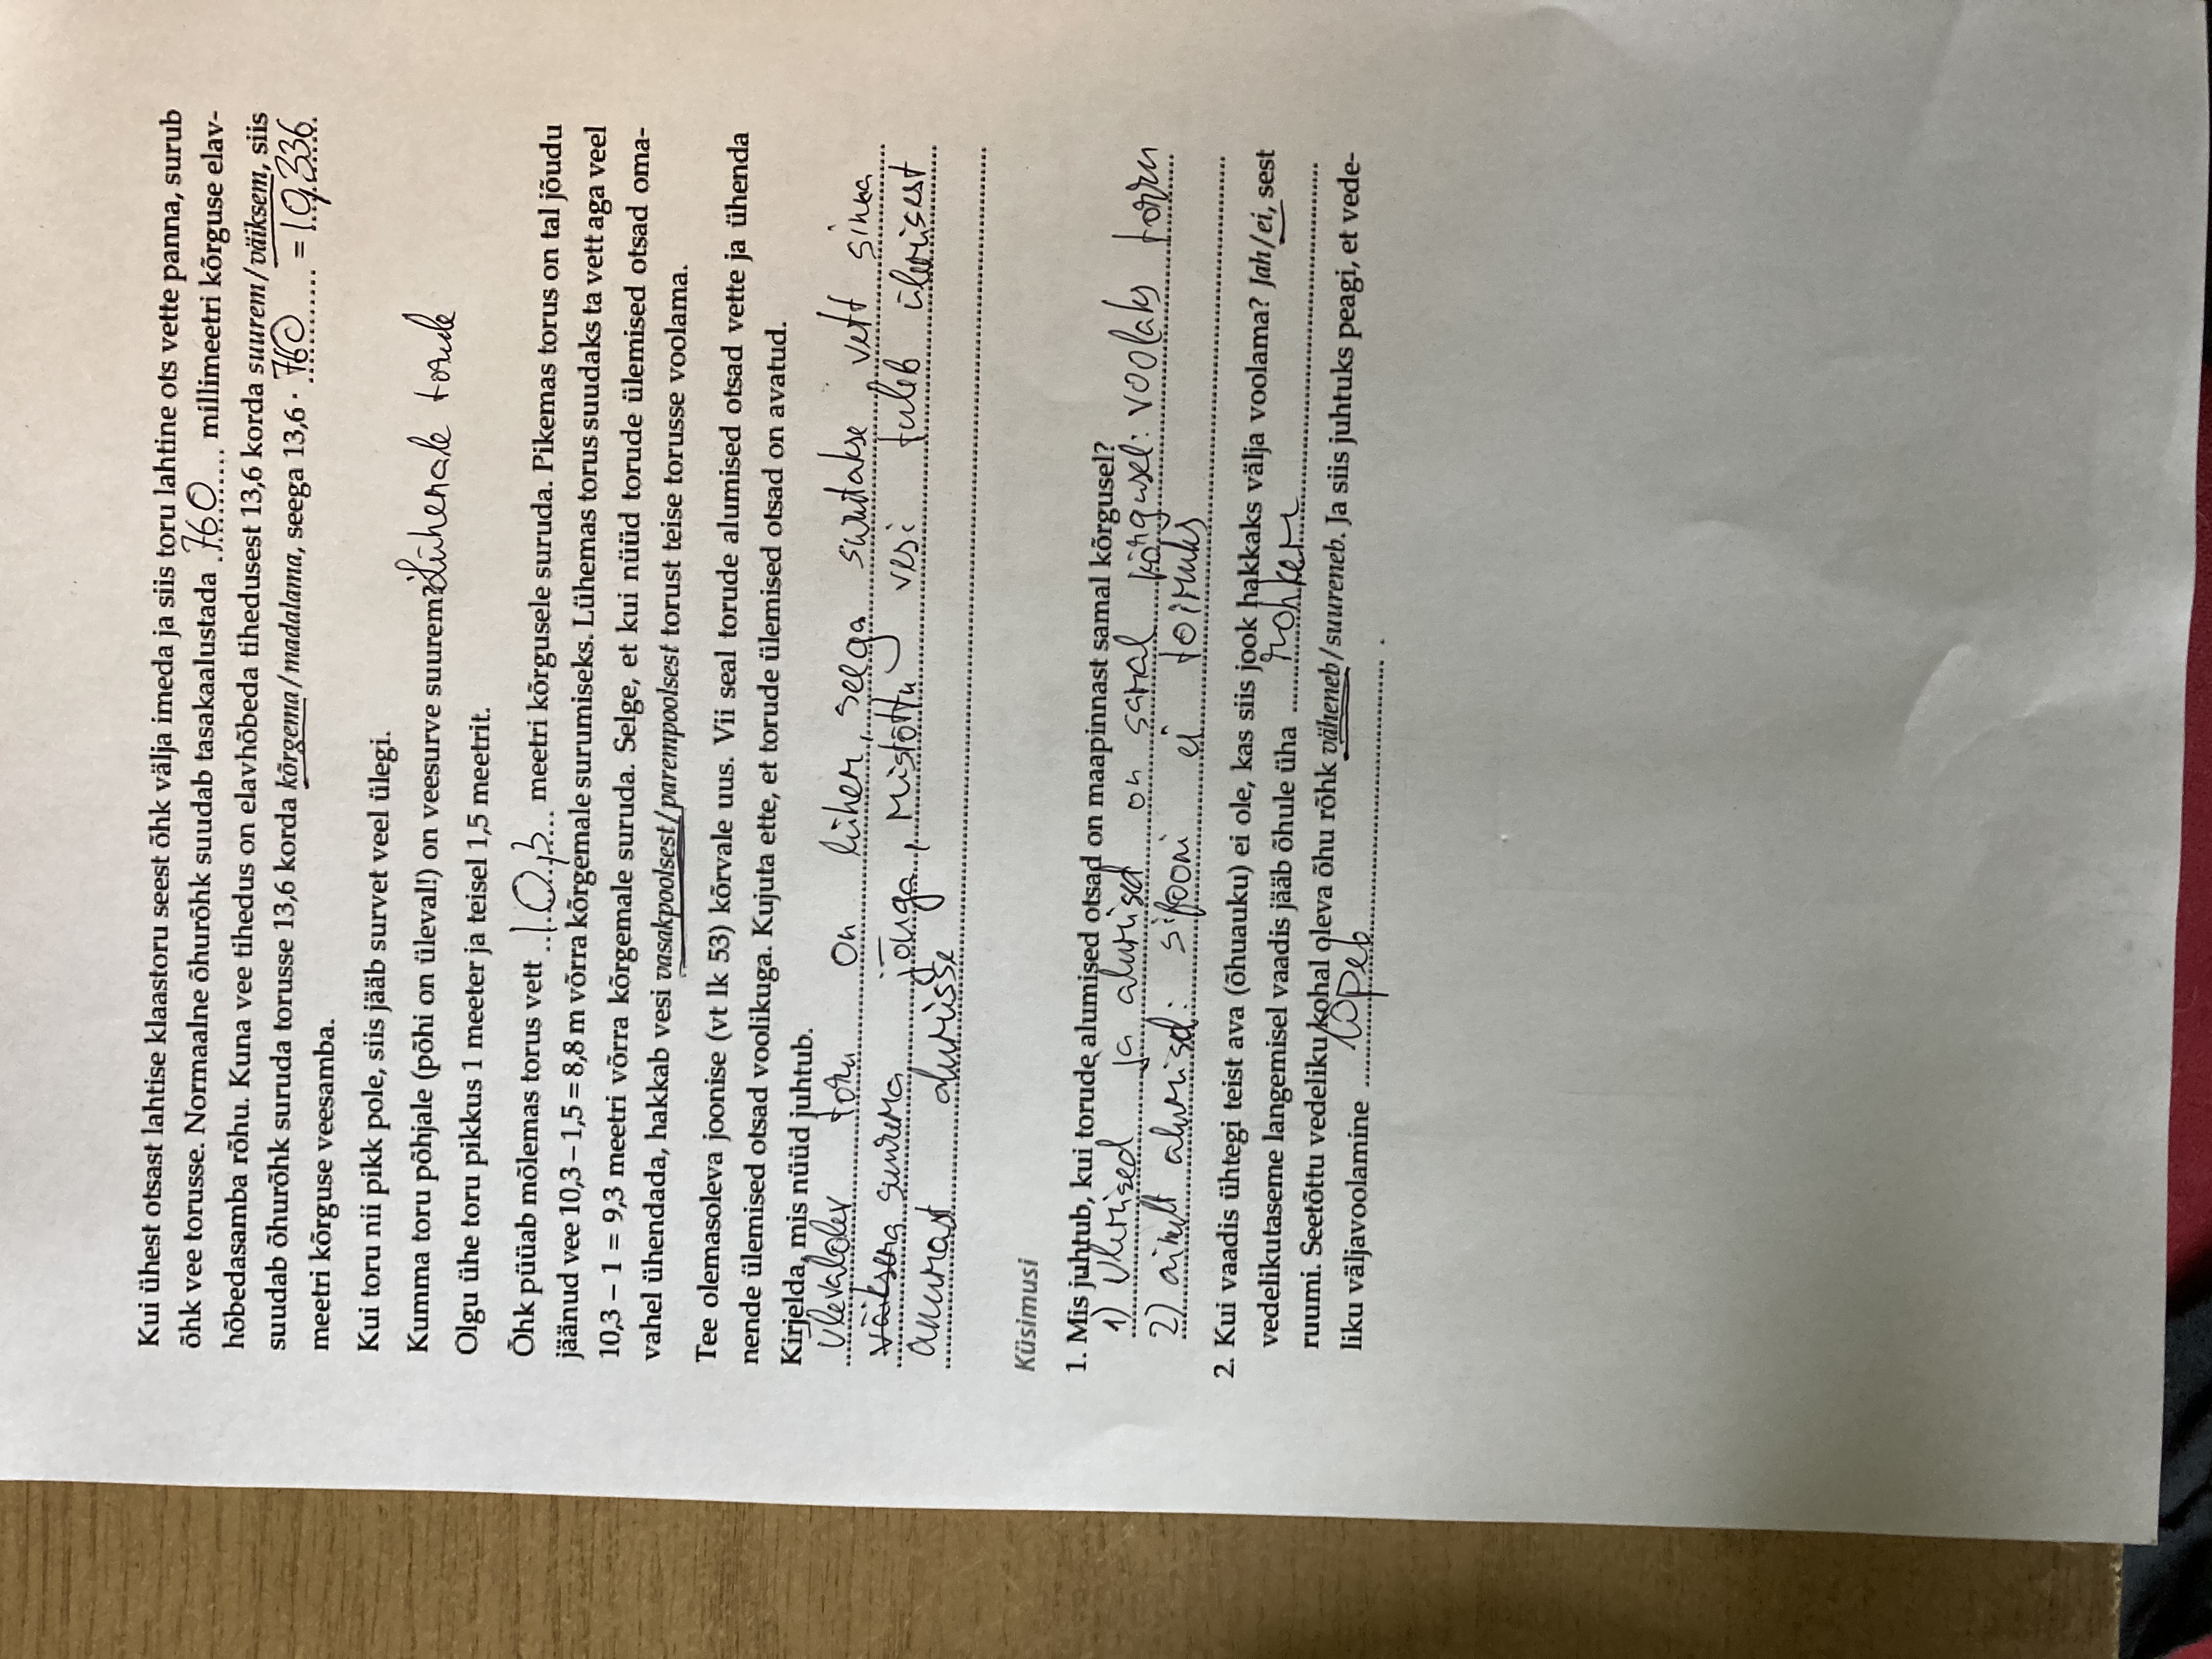 Kui ühest otsast lahtise klaastoru seest õhk välja imeda ja siis toru lahtine ots vette panna, surub
õhk vee torusse. Normaalne õhurõhk suudab tasakaalustada 760 millimeetri kõrguse elav-
hõbedasamba rõhu. Kuna vee tihedus on elavhõbeda tihedusest 13,6 korda suurem/väiksem, siis
suudab õhurõhk suruda torusse 13,6 korda kõrgema/madalama, seega 13,6 · 760 = 10,336
meetri kõrguse veesamba.
Kui toru nii pikk pole, siis jääb survet veel ülegi.
Kumma toru põhjale (põhi on üleval!) on veesurve suurem? Lühemale torule
Olgu ühe toru pikkus 1 meeter ja teisel 1,5 meetrit.
Õhk püüab mõlemas torus vett 10,3 meetri kõrgusele suruda. Pikemas torus on tal jõudu
jäänud vee 10,3 – 1,5 = 8,8 m võrra kõrgemale surumiseks. Lühemas torus suudaks ta vett aga veel
10,3 – 1 = 9,3 meetri võrra kõrgemale suruda. Selge, et kui nüüd torude ülemised otsad oma-
vahel ühendada, hakkab vesi vasakpoolsest/parempoolsest torust teise torusse voolama.
Tee olemasoleva joonise (vt lk 53) kõrvale uus. Vii seal torude alumised otsad vette ja ühenda
nende ülemised otsad voolikuga. Kujuta ette, et torude ülemised otsad on avatud.
Kirjelda, mis nüüd juhtub.
Ülevalolev toru on lühem, seega surutakse vett sinna
väiksema suurema jõuga, mistõttu vesi tuleb ülemisest
anumast alumisse
Küsimusi
1. Mis juhtub, kui torude alumised otsad on maapinnast samal kõrgusel?
1) Ülemised ja alumised on samal kõrgusel: voolaks torru
2) ainult alumised: sifooni ei toimuks
2. Kui vaadis ühtegi teist ava (õhuauku) ei ole, kas siis jook hakkaks välja voolama? Jah/ei, sest
vedelikutaseme langemisel vaadis jääb õhule üha rohkem
ruumi. Seetõttu vedeliku kohal oleva õhu rõhk väheneb/suureneb. Ja siis juhtuks peagi, et vede-
liku väljavoolamine lõpeb .